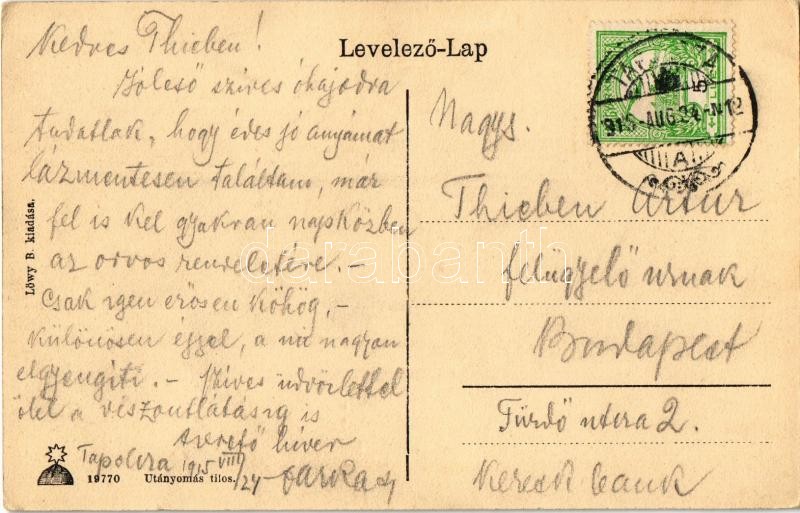 Kedves Thieben!
Jóleső szives óhajodra
tudatlak, hogy édes jó anyámat
lázmentesen találtam, már
fel is kel gyakran napközben
az orvos rendeletére. –
Csak igen erősen köhög, –
különösen éjjel, a mi nagyon
elgyengíti. – Szives üdvözlettel
ölel a viszontlátásig is
szerető hived
Tapolcza 1915 VIII/24 Farkas
Löwy B. kiadása.
19770 Utányomás tilos.
Levelező-Lap
915 AUG. 24 N12
A
Nagys.
Thieben Artur
felügyelő urnak
Budapest
Fürdő utcza 2.
Keresk bank
darabanth